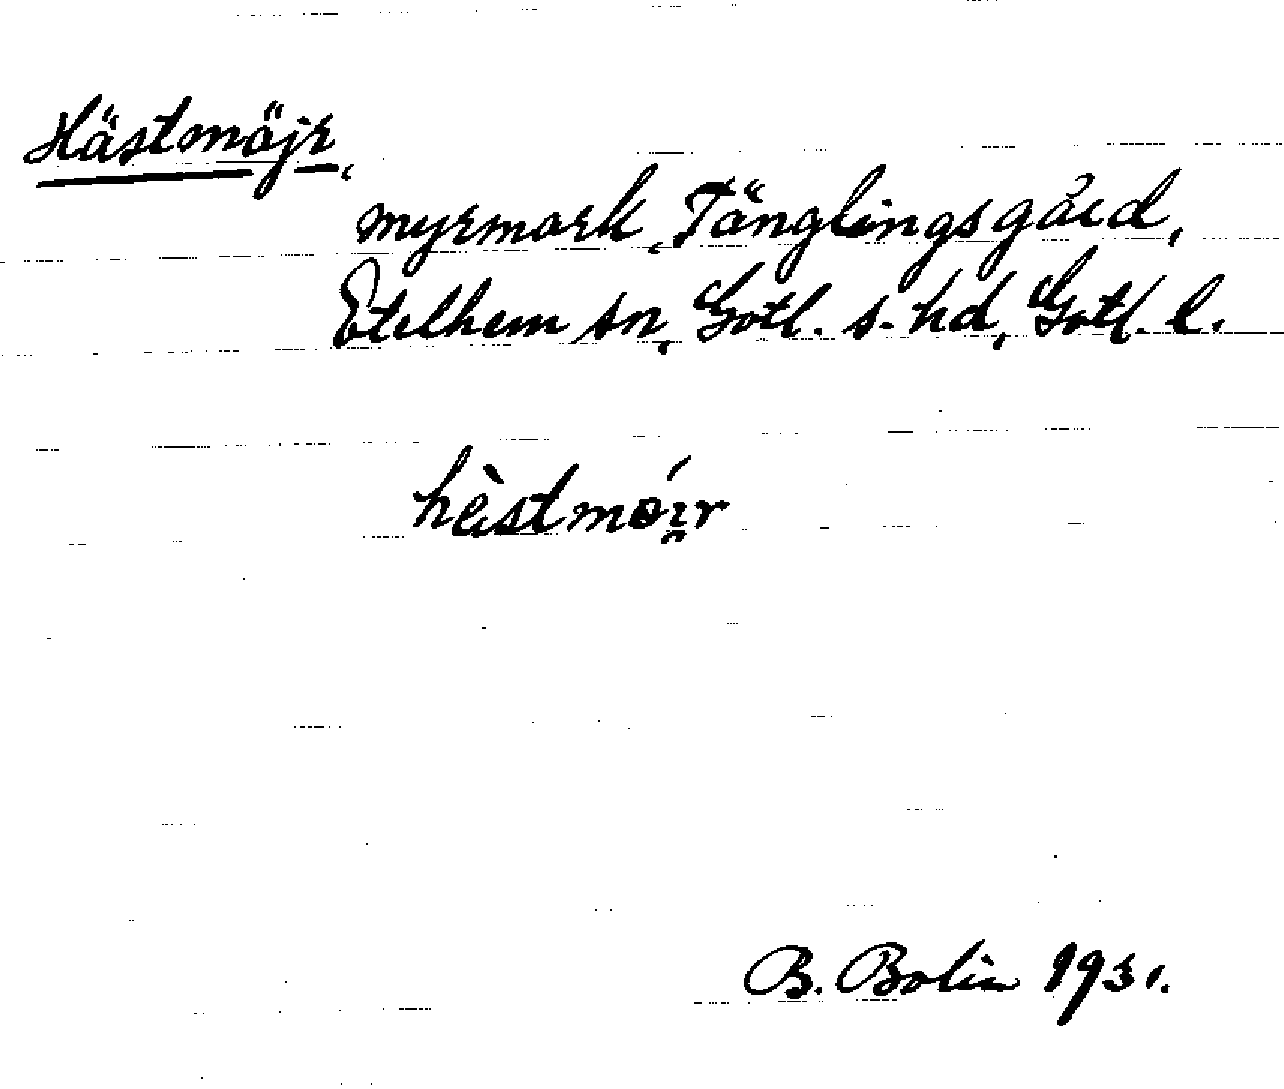 Hästmöjr,
myrmark, Tänglingsgård,
Etelhem sn, Gotl. s. hd, Gotl. l.
hèstmøi̯r
B. Bolin 1931.